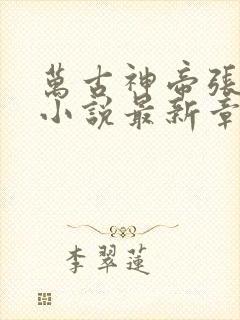 萬古神帝張
小說最新章
李翠蓮